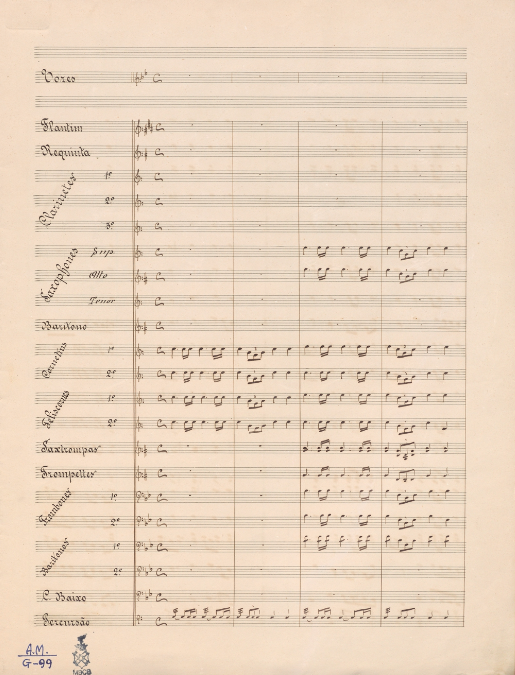 Vozes
Flautim
Requinta
Clarinetes 1º
2º
3º
Saxophones Sop.
Alto
Tenor
Baritono
Cornetins 1º
2º
1º
2º
Saxtrompas
Trompettes
Trombones 1º
2º
Baritonos 1º
2º
C. Baixo
Percursão
A.M.
G-99